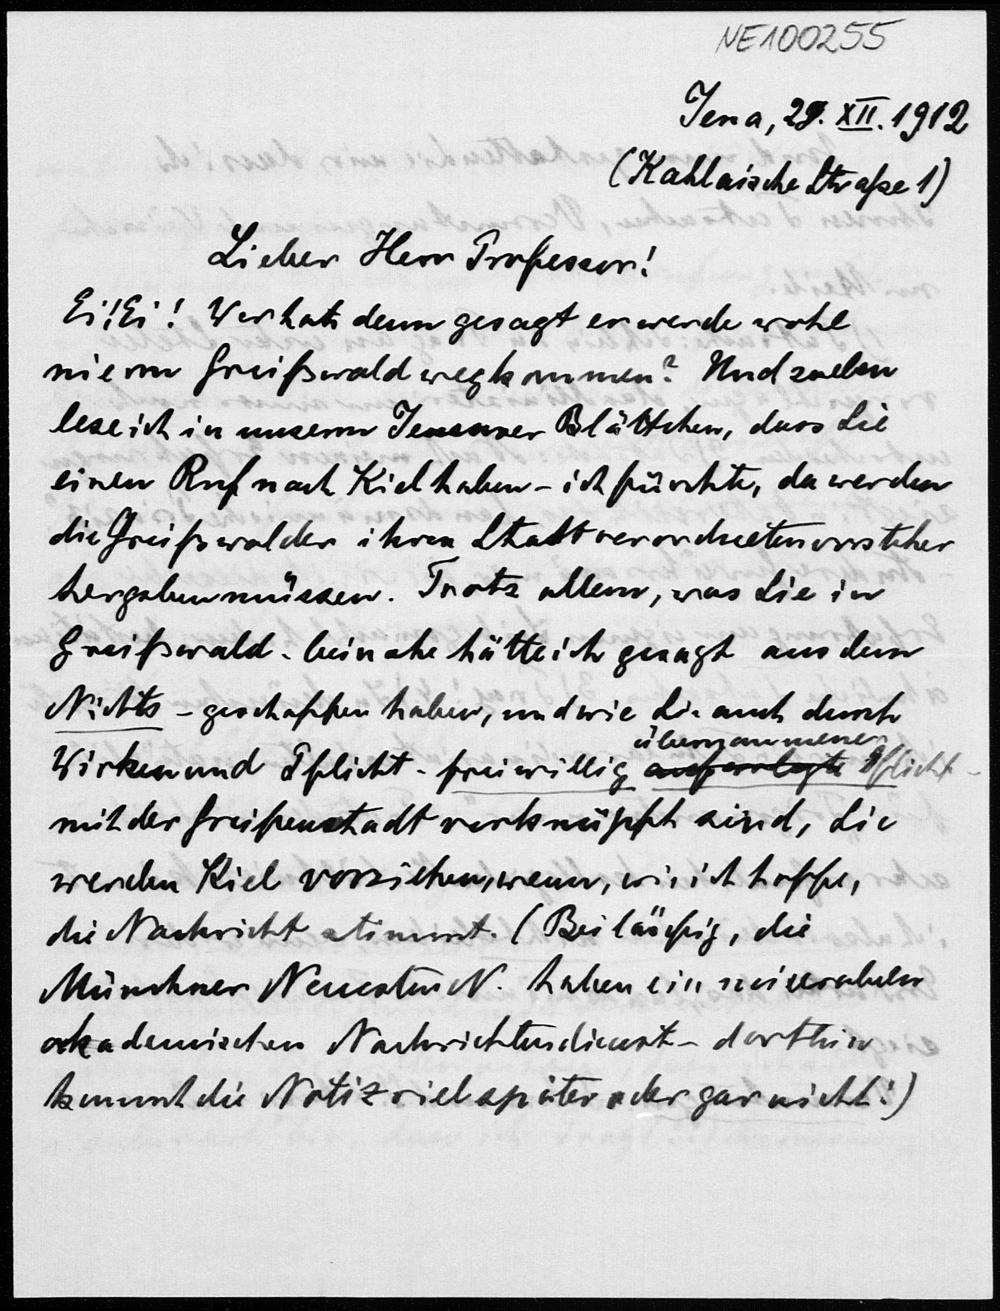 NE100255
Jena, 29. XII. 1912
(Kahlaische Straße 1)
Lieber Herr Professor!
Ei! Ei! Wer hat denn gesagt er werde wohl
nie von Greifswald wegkommen? Und soeben
lese ich in unserm Jenenser Blättchen, dass Sie
einen Ruf nach Kiel haben – ich fürchte, da werden
die Greifswalder ihren Stadtverordnetenvorsteher
hergeben müssen. Trotz allem, was Sie in
Greifswald - beinahe hätte ich gesagt aus dem
Nichts – geschaffen haben, und wie Sie auch durch
übernommener
Wirken und Pflicht - freiwillig auferlegte Pflicht -
mit der Greifenstadt verknüpft sind, Sie
werden Kiel vorziehen, wenn, wie ich hoffe,
die Nachricht stimmt. (Beiläufig, die
Münchner Neuesten N. haben ein miserablen
akademischen Nachrichtendienst – dorthin
kommt die Notiz viel später oder gar nicht!)